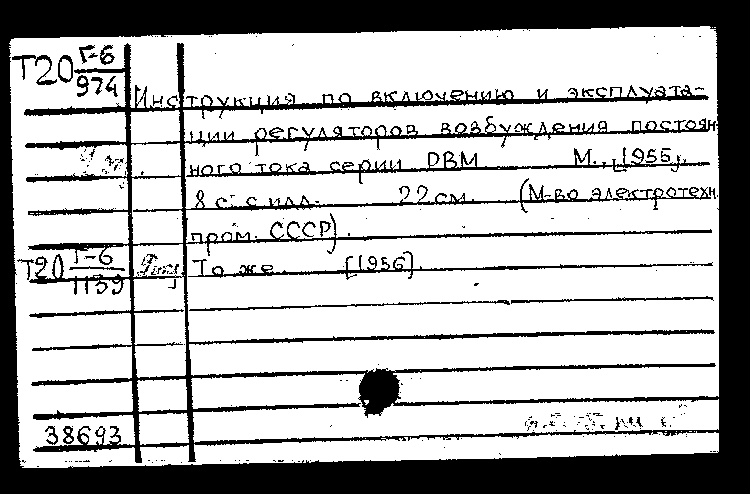 Т20 Г-6
974
Инструкция по включению и эксплуата-
ции регуляторов возбуждения постоян
ного тока серии РВМ М., [1955].
8 с. с илл. 22 см. (М-во электротехн
пром. СССР).
Т20 Г-6
1139
То же. [1956].
38693